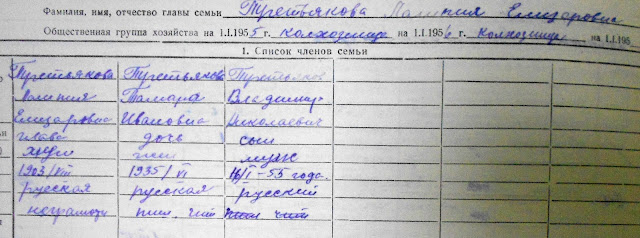 Фамилия, имя, отчество главы семьи Третьякова Елизаровна
Общественная группа хозяйства на 1.I.1955 г. колхозница на 1.I.1956 г. колхозница на 1.I.195
1. Список членов семьи
Третьякова Третьякова Третьяков
Тамара Владимир
Елизаровна Ивановна Николаевич
глава дочь сын
жен муж
1903/VIII 1935/VI 16/I-55 года.
русская русская русский
неграмотн чит чит